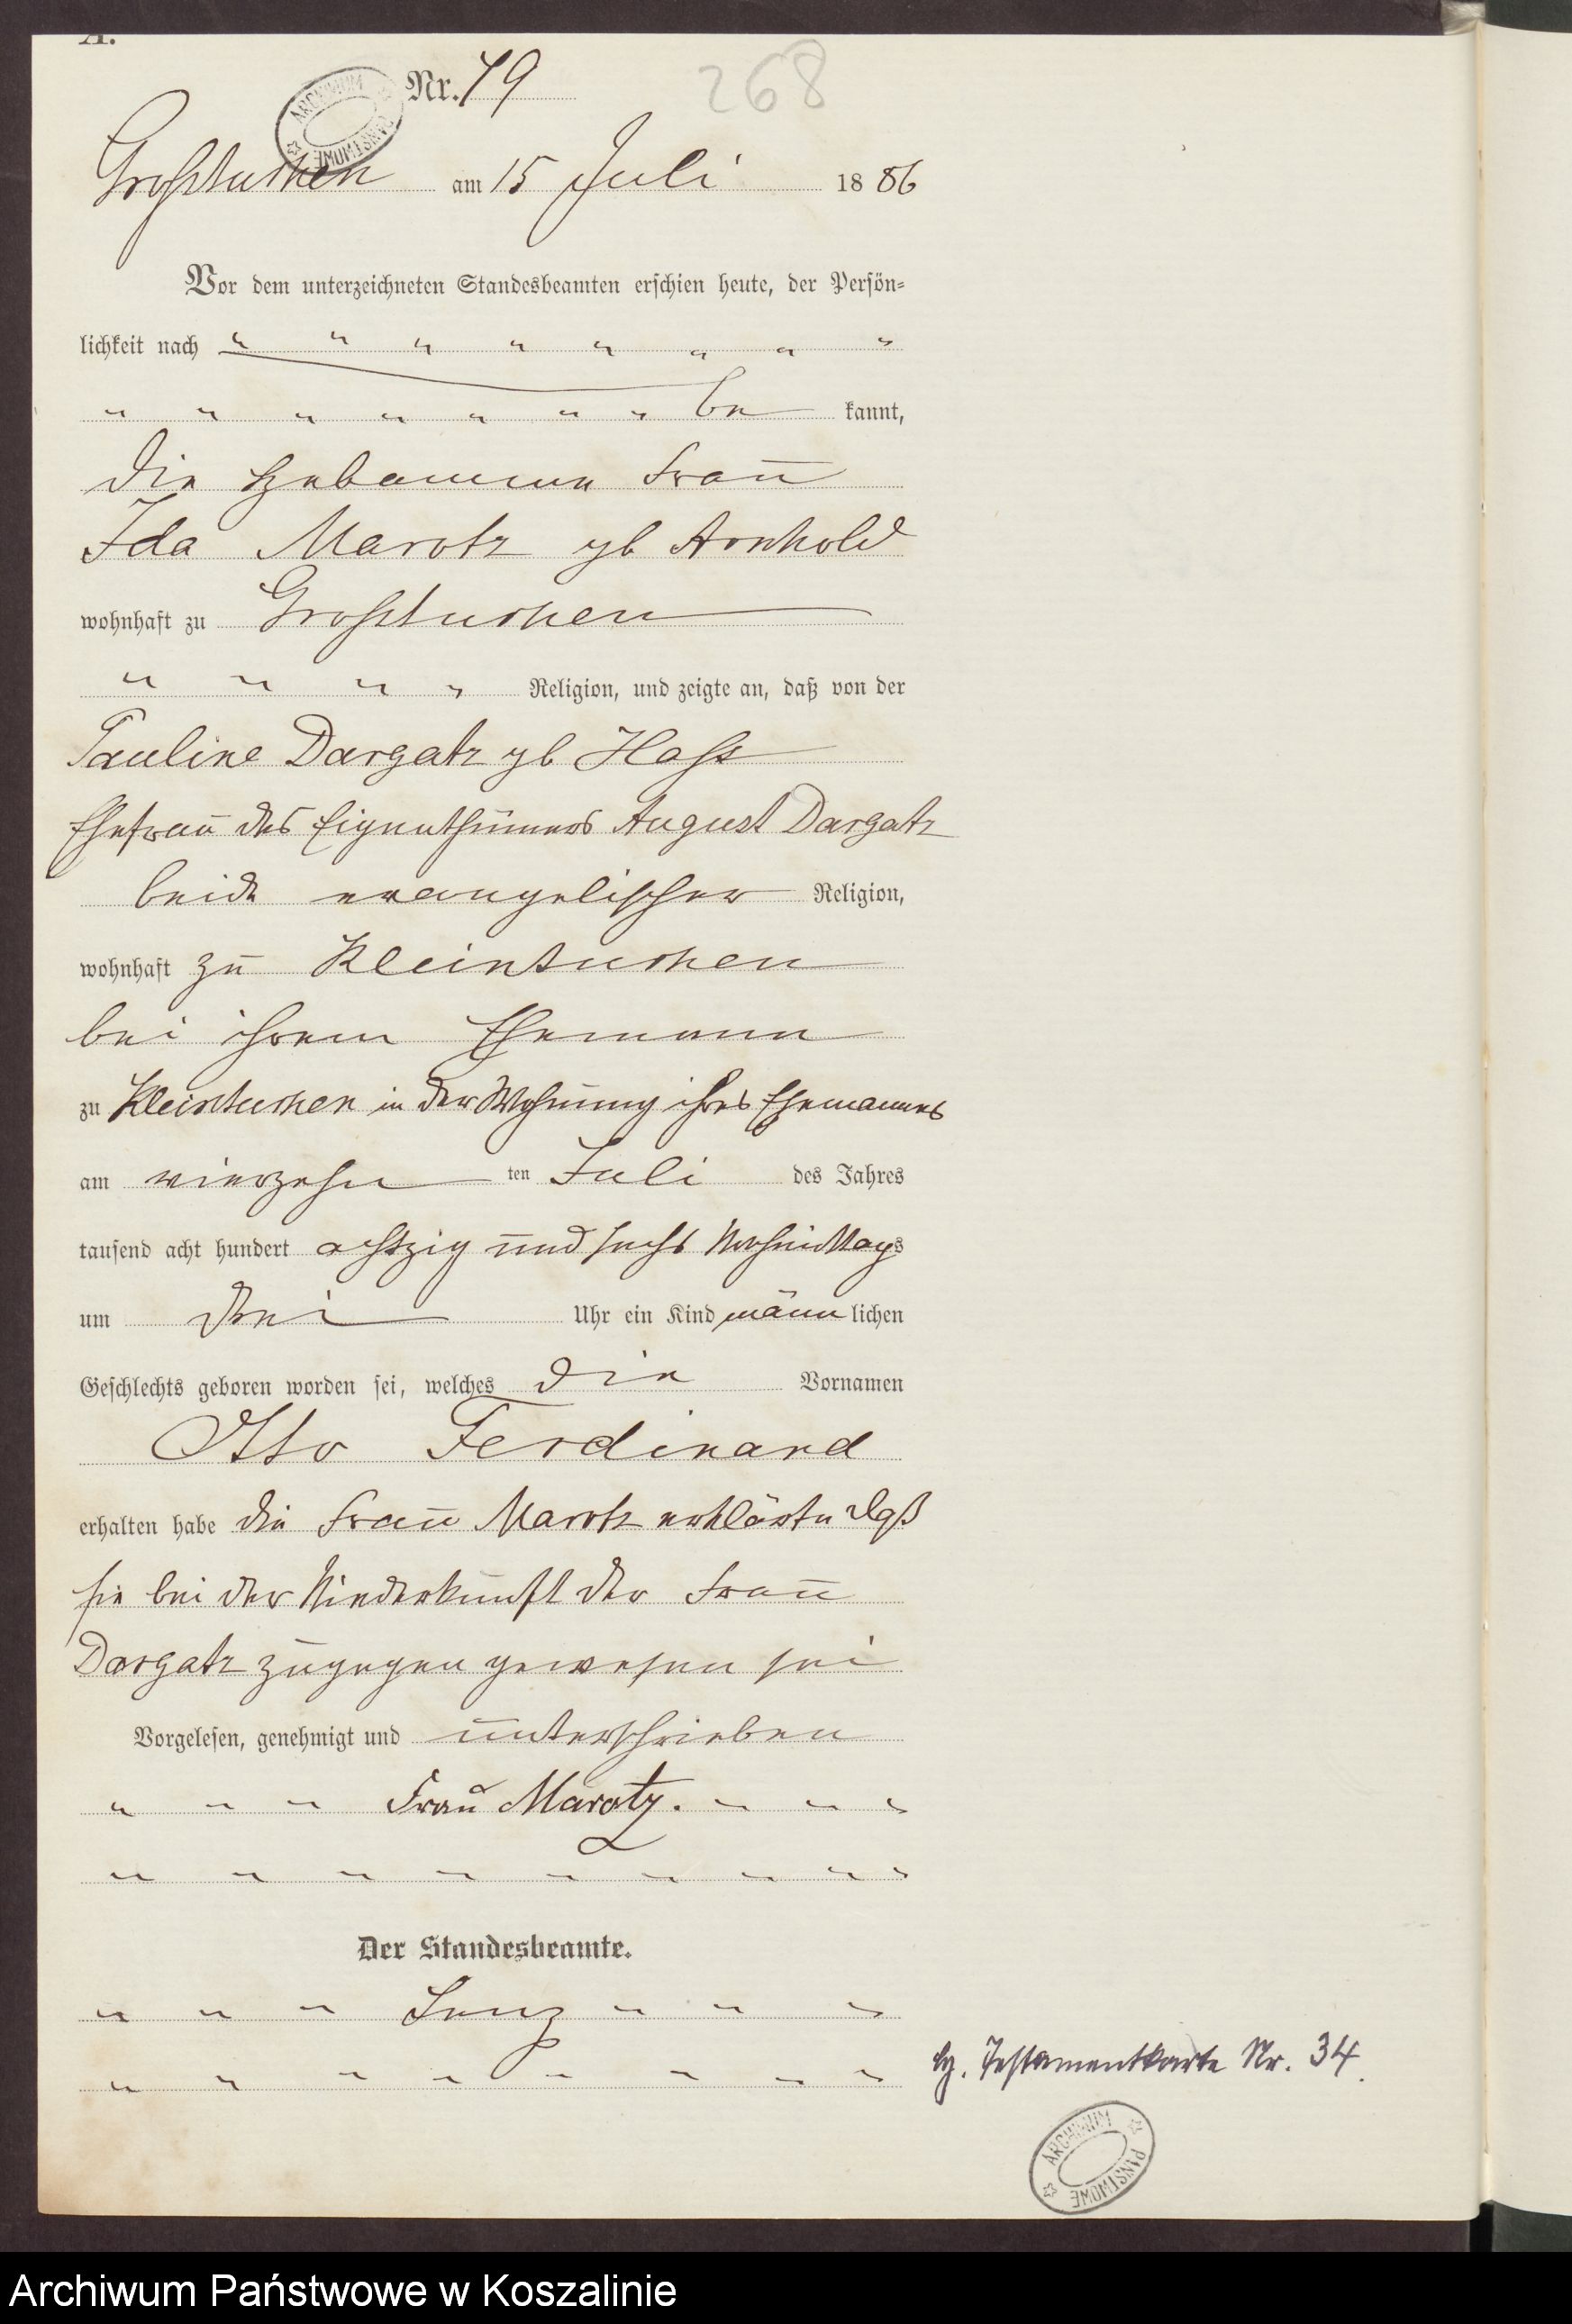 A.
Nr. 79
268
ARCHIWUM PAŃSTWOWE
Großtuchen am 15 Juli 1886
Vor dem unterzeichneten Standesbeamten erschien heute, der Persön-
lichkeit nach " " " " " " " "
" " " " " " " be kannt,
die Hebamme Frau
Ida Marotz gb Arnhold
wohnhaft zu Großtuchen
" " " " Religion, und zeigte an, daß von der
Pauline Dargatz gb Hass
Ehefrau des Eigenthümers August Dargatz
beide evangelischer Religion,
wohnhaft zu Kleintuchen
bei ihrem Ehemann
zu Kleintuchen in der Wohnung ihres Ehemannes
am vierzehn ten Juli des Jahres
tausend acht hundert achtzig und sechs Nachmittags
um drei Uhr ein Kind männ lichen
Geschlechts geboren worden sei, welches die Vornamen
Otto Ferdinand
erhalten habe die Frau Marotz erklärte daß
sie bei der Niederkunft der Frau
Dargatz zugegen gewesen sei
Vorgelesen, genehmigt und unterschrieben
" " " Frau Marotz. " " "
" " " " " " " " "
Der Standesbeamte.
" " " Lenz " " "
" " " " " " " "
Testamentkarte Nr. 34.
ARCHIWUM PAŃSTWOWE
Archiwum Państwowe w Koszalinie